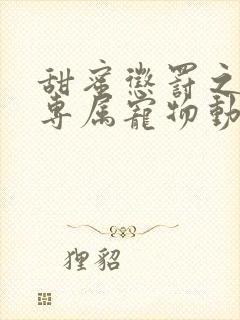 甜蜜懲罰之
專属寵物動
狸貂